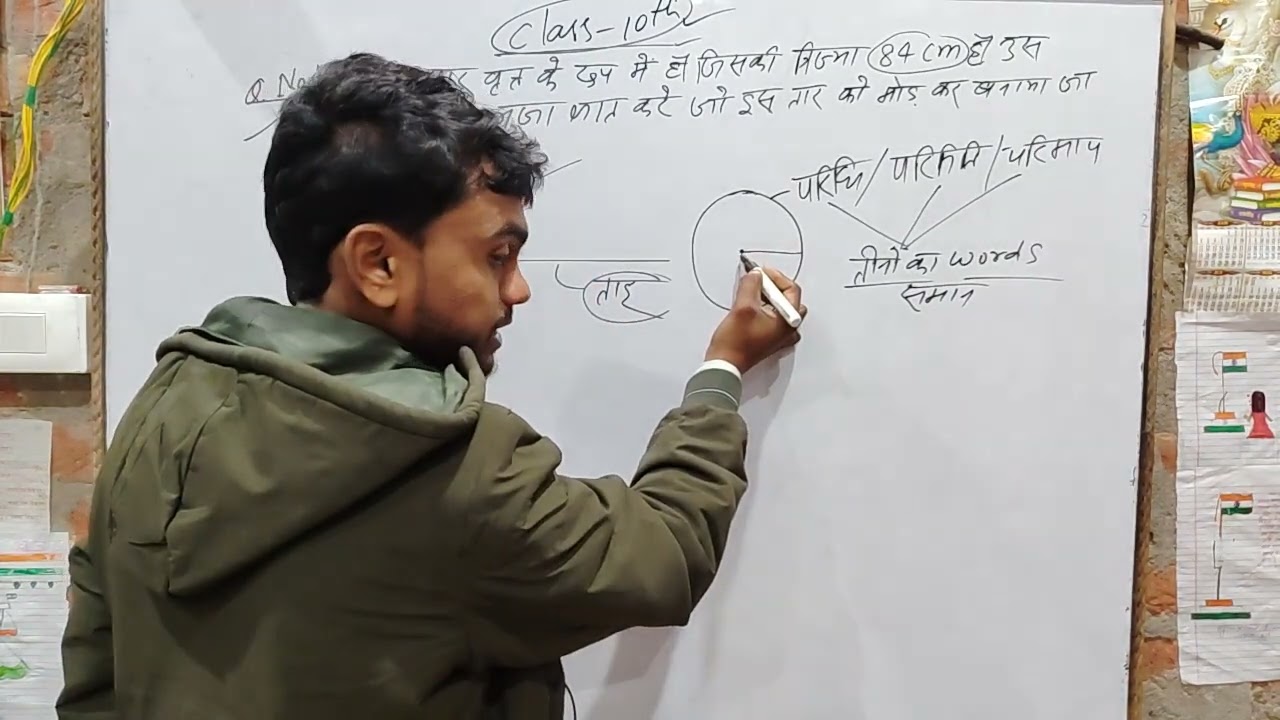 Class-10th
Q No वृत के रूप में हो जिसकी त्रिज्या 84 cm हो उस
ज्ञात करें जो इस तार को मोड़ कर बनाया जा
परिधि / परिमिति / परिमाप
तीनों का words
समान
तार